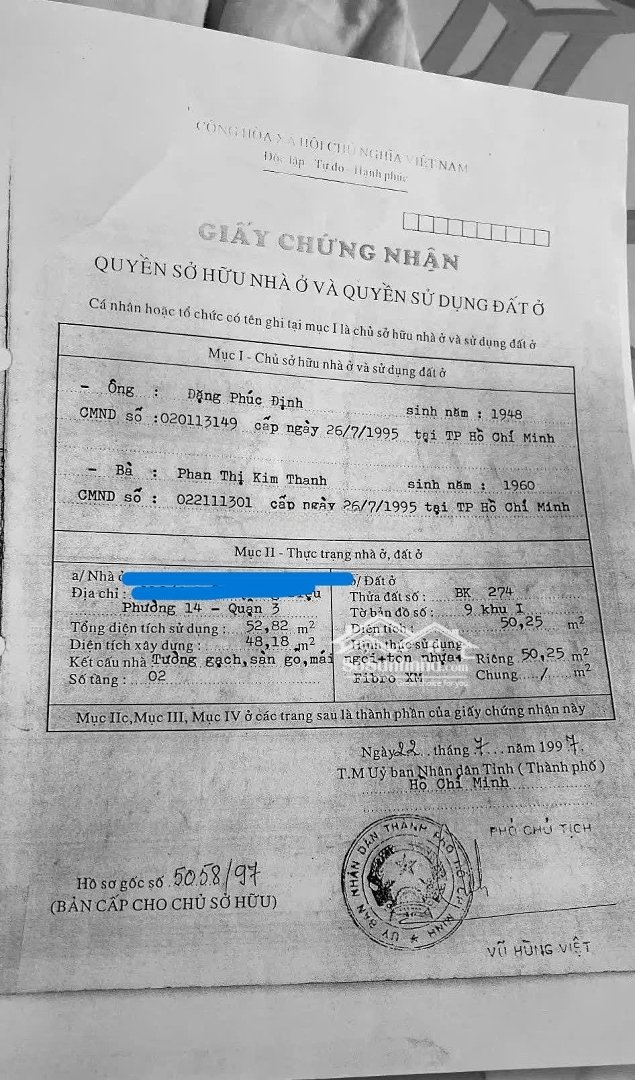 CỘNG HÒA XÃ HỘI CHỦ NGHĨA VIỆT NAM
Độc lập - Tự do - Hạnh phúc
GIẤY CHỨNG NHẬN
QUYỀN SỞ HỮU NHÀ Ở VÀ QUYỀN SỬ DỤNG ĐẤT Ở
Cá nhân hoặc tổ chức có tên ghi tại mục I là chủ sở hữu nhà ở và sử dụng đất ở
Mục I - Chủ sở hữu nhà ở và sử dụng đất ở
- Ông : Đặng Phúc Định sinh năm : 1948
CMND số :020113149 cấp ngày 26/7/1995 tại TP Hồ Chí Minh
- Bà : Phan Thị Kim Thanh sinh năm : 1960
CMND số : 022111301 cấp ngày 26/7/1995 tại TP Hồ Chí Minh
Mục II - Thực trạng nhà ở, đất ở
a/ Nhà
Địa chỉ :
Phường 14 - Quận 3
Tổng diện tích sử dụng : 52,82 m²
Diện tích xây dựng : 48,18 m²
Kết cấu nhà Tường gạch,sàn gỗ,mái
Số tầng : 02
b/ Đất ở
Thửa đất số : BK 274
Tờ bản đồ số : 9 khu I
Diện tích : 50,25 m²
Hình thức sử dụng
ngói+tôn nhựa+ Riêng 50,25 m²
Fibro XM Chung / m²
Mục IIc,Mục III, Mục IV ở các trang sau là thành phần của giấy chứng nhận này
Ngày 22 tháng 7 năm 1997.
T.M Uỷ ban Nhân dân Tỉnh ( Thành phố )
Hồ Chí Minh
PHÓ CHỦ TỊCH
ỦY BAN NHÂN DÂN THÀNH PHỐ HỒ CHÍ MINH
Hồ sơ gốc số 5058/97
(BẢN CẤP CHO CHỦ SỞ HỮU)
VŨ HÙNG VIỆT